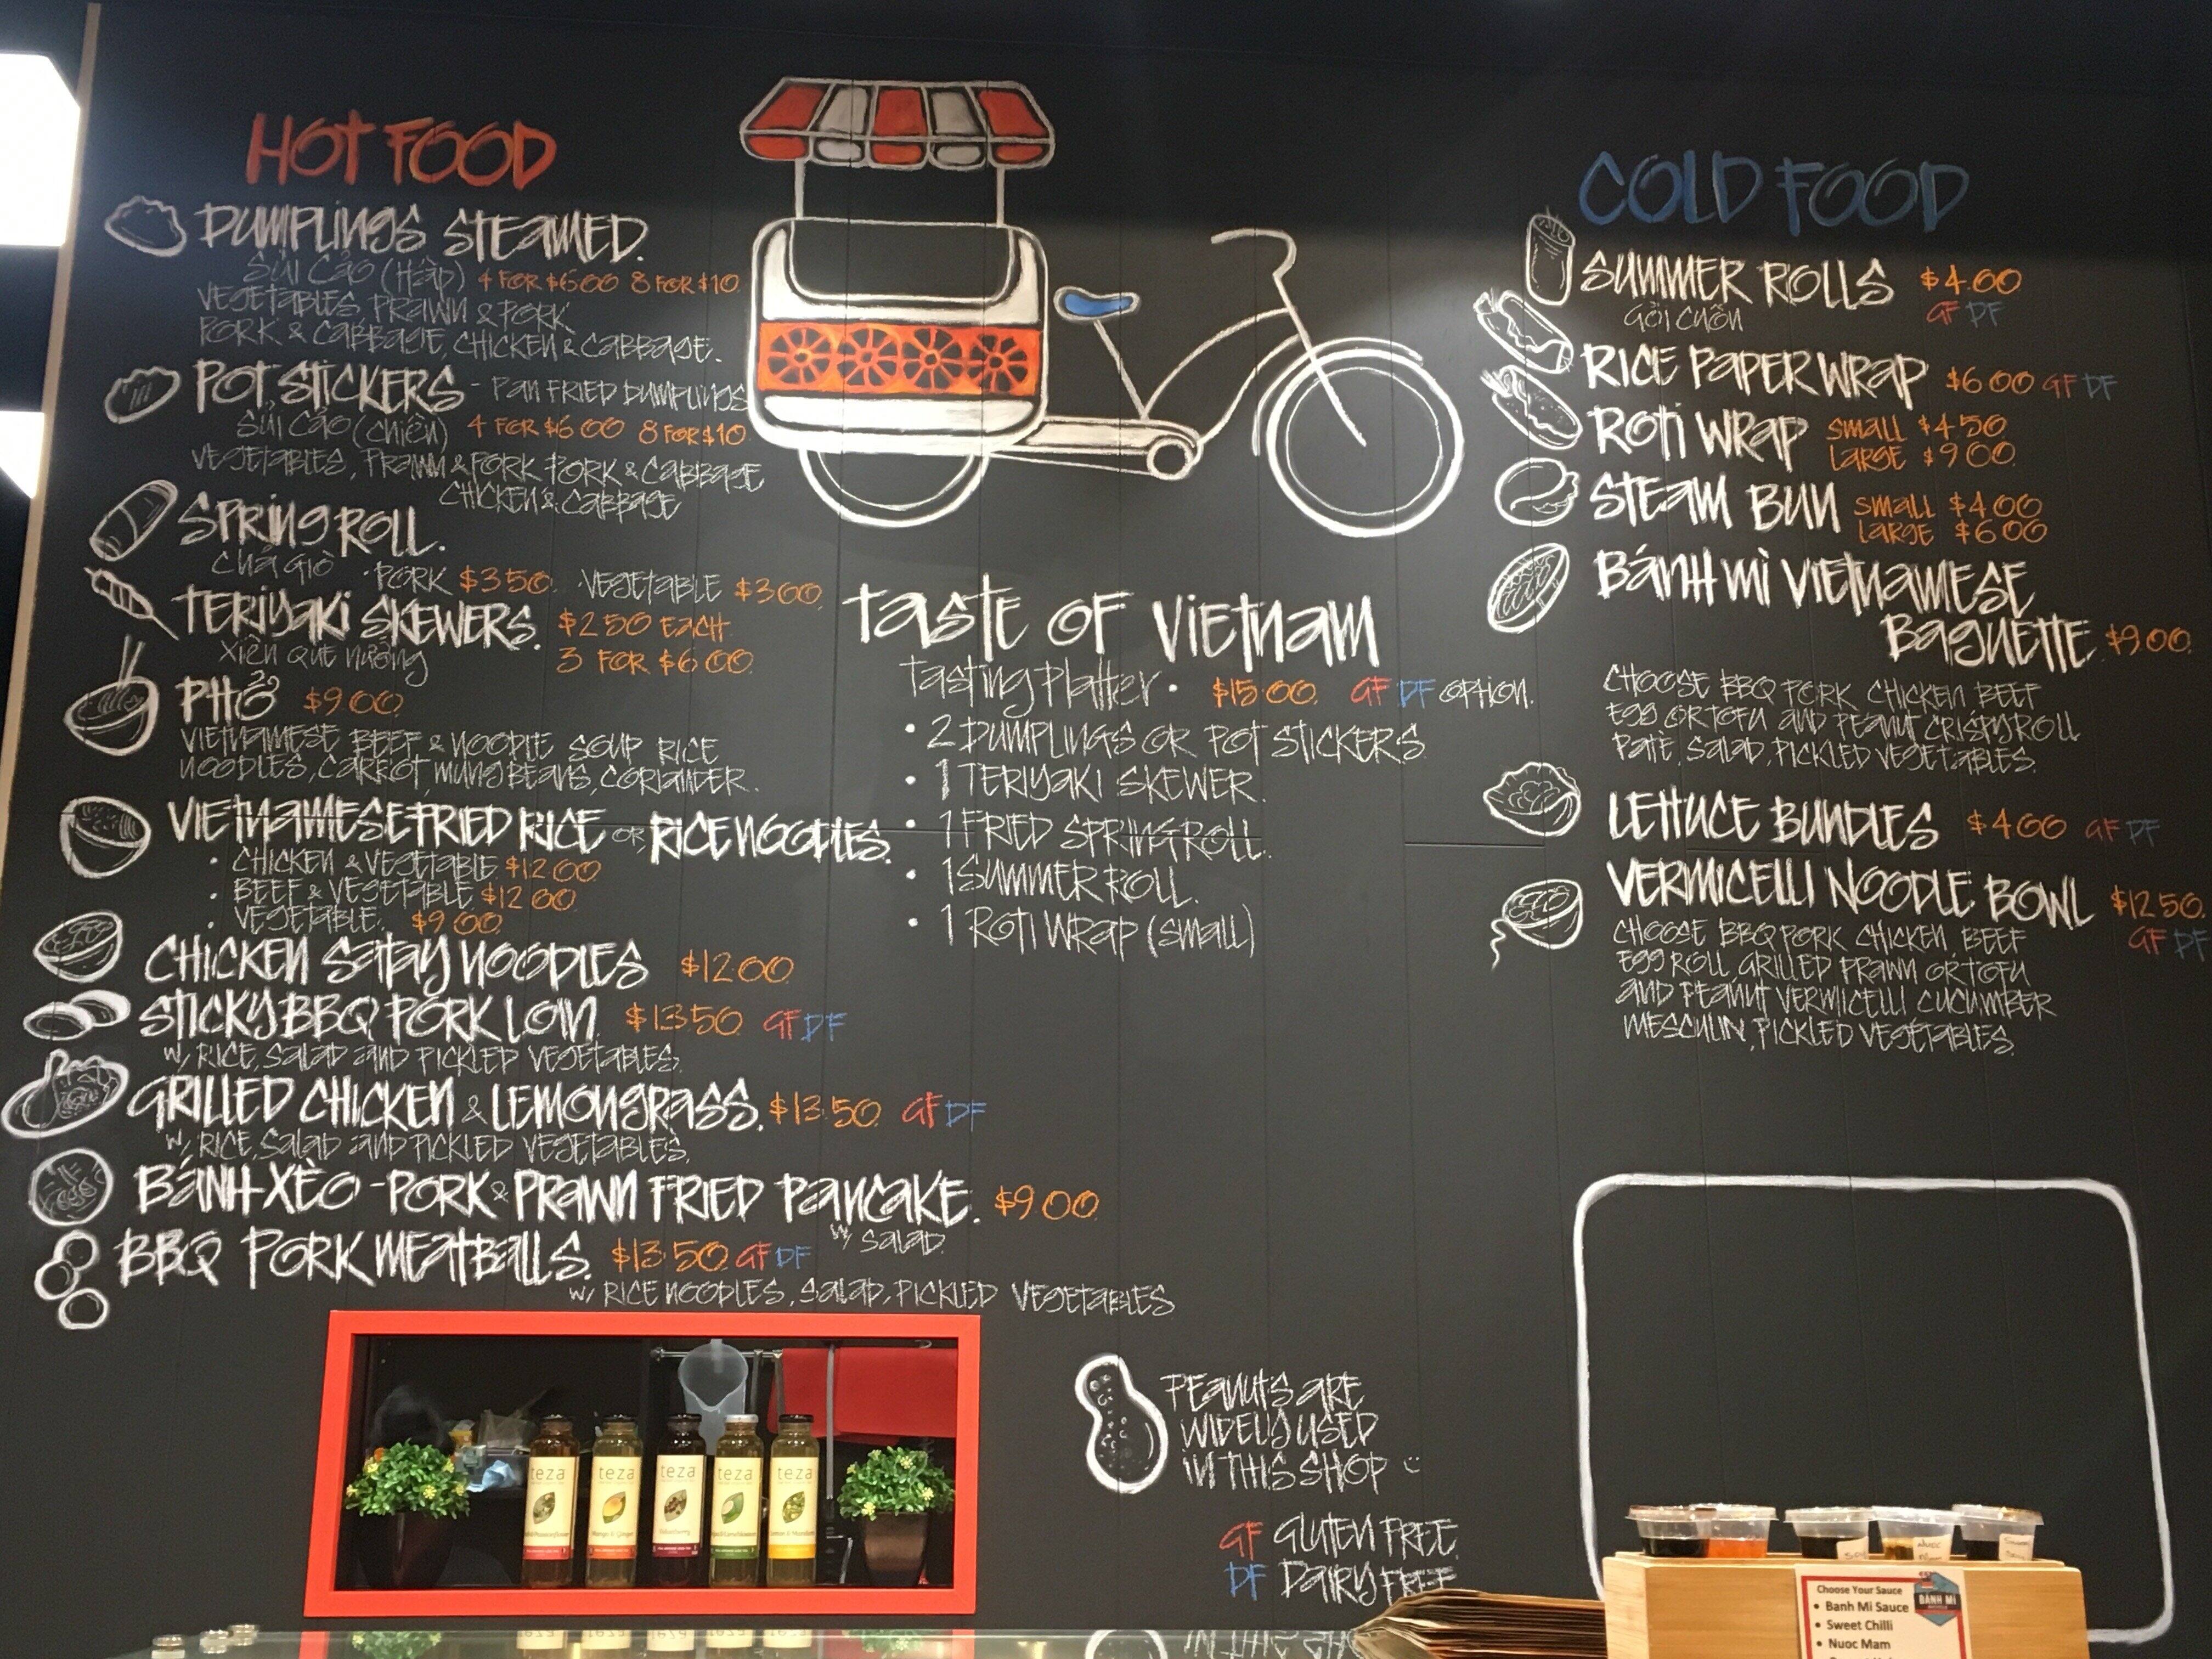 HOT FOOD
DUMPLINGS STEAMED.
SỦI CẢO (HẤP) 4 FOR $6.00 8 FOR $10.
VEGETABLES, PRAWN & PORK
PORK & CABBAGE, CHICKEN & CABBAGE.
POT STICKERS - PAN FRIED DUMPLINGS
SỦI CẢO (CHIÊN) 4 FOR $6.00 8 FOR $10.
VEGETABLES, PRAWN & PORK PORK & CABBAGE
CHICKEN & CABBAGE
SPRING ROLL.
CHẢ GIÒ · PORK $3.50. VEGETABLE $3.00.
TERIYAKI SKEWERS. $2.50 EACH
XIÊN QUE NƯỚNG 3 FOR $6.00.
PHỞ $9.00
VIETNAMESE BEEF & NOODLE SOUP RICE
NOODLES, CARROT, MUNG BEANS, CORIANDER.
VIETNAMESE FRIED RICE OR RICE NOODLES.
• CHICKEN & VEGETABLE $12.00
• BEEF & VEGETABLE $12.00
• VEGETABLE. $9.00.
CHICKEN SATAY NOODLES $12.00
STICKY BBQ PORK LOIN. $13.50 GF DF
W/ RICE, SALAD AND PICKLED VEGETABLES.
GRILLED CHICKEN & LEMONGRASS. $13.50 GF DF
W/ RICE, SALAD AND PICKLED VEGETABLES.
BÁNH XÈO - PORK & PRAWN FRIED PANCAKE. $9.00
W/ SALAD.
BBQ PORK MEATBALLS. $13.50 GF DF
W/ RICE NOODLES, SALAD, PICKLED VEGETABLES
TASTE OF VIETNAM
TASTING PLATTER · $15.00. GF DF OPTION.
• 2 DUMPLINGS OR POT STICKERS
• 1 TERIYAKI SKEWER.
• 1 FRIED SPRING ROLL.
• 1 SUMMER ROLL.
• 1 ROTI WRAP (SMALL)
COLD FOOD
SUMMER ROLLS $4.00
GỎI CUỐN GF DF
RICE PAPER WRAP $6.00 GF DF
ROTI WRAP SMALL $4.50
LARGE $9.00
STEAM BUN SMALL $4.00
LARGE $6.00
BÁNH MÌ VIETNAMESE
BAGUETTE $9.00.
CHOOSE BBQ PORK CHICKEN BEEF
EGG OR TOFU AND PEANUT CRISPY ROLL
PATÈ, SALAD, PICKLED VEGETABLES.
LETTUCE BUNDLES $4.00 GF DF
VERMICELLI NOODLE BOWL $12.50.
GF DF
CHOOSE BBQ PORK CHICKEN, BEEF
EGG ROLL, GRILLED PRAWN OR TOFU
AND PEANUT VERMICELLI CUCUMBER
MESCULIN, PICKLED VEGETABLES.
PEANUTS ARE
WIDELY USED
IN THIS SHOP
GF GLUTEN FREE
DF DAIRY FREE
teza teza teza teza teza
Mango & Ginger
Choose Your Sauce
BÁNH MÌ
• Banh Mi Sauce
• Sweet Chilli
• Nuoc Mam